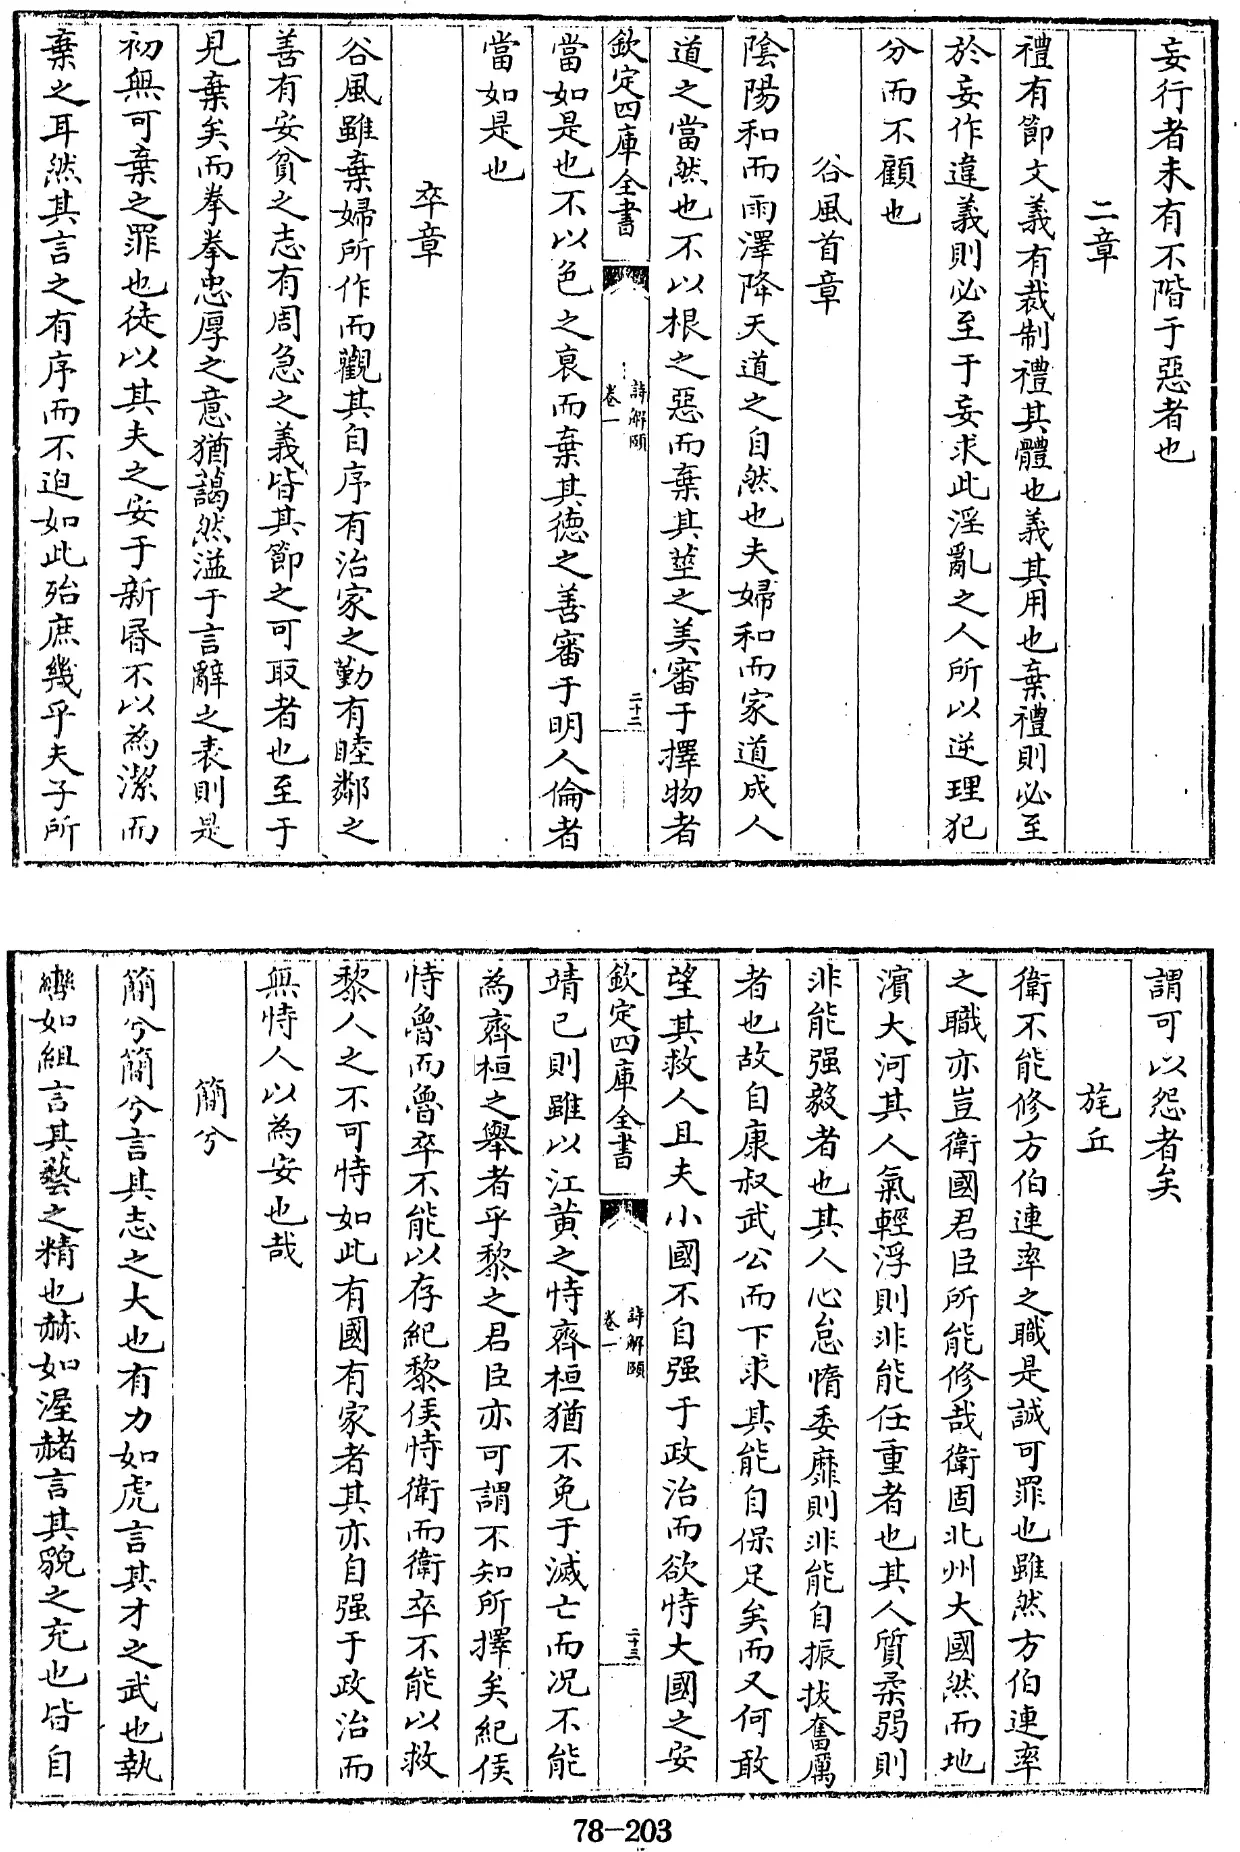 妄行者未有不階于惡者也
二章
禮有節文義有裁制禮其體也義其用也棄禮則必至
於妄作違義則必至于妄求此淫亂之人所以逆理犯
分而不顧也
谷風首章
陰陽和而雨澤降天道之自然也夫婦和而家道成人
道之當然也不以根之惡而棄其莖之美審于擇物者
欽定四庫全書
詩解頤
卷一
二十二
當如是也不以色之衰而棄其德之善審于明人倫者
當如是也
卒章
谷風雖棄婦所作而觀其自序有治家之勤有睦鄰之
善有安貧之志有周急之義皆其節之可取者也至于
見棄矣而拳拳忠厚之意猶藹然溢于言辭之表則是
初無可棄之罪也徒以其夫之安于新昏不以為潔而
棄之耳然其言之有序而不迫如此殆庶幾乎夫子所
謂可以怨者矣
旄丘
衛不能修方伯連率之職是誠可罪也雖然方伯連率
之職亦豈衛國君臣所能修哉衛固北州大國然而地
濱大河其人氣輕浮則非能任重者也其人質柔弱則
非能强毅者也其人心怠惰委靡則非能自振拔奮厲
者也故自康叔武公而下求其能自保足矣而又何敢
望其救人且夫小國不自强于政治而欲恃大國之安
欽定四庫全書
詩解頤
卷一
二十三
靖已則雖以江黄之恃齊桓猶不免于滅亡而况不能
為齊桓之舉者乎黎之君臣亦可謂不知所擇矣紀侯
恃魯而魯卒不能以存紀黎侯恃衛而衛卒不能以救
黎人之不可恃如此有國有家者其亦自强于政治而
無恃人以為安也哉
簡兮
簡兮簡兮言其志之大也有力如虎言其才之武也執
轡如組言其藝之精也赫如渥赭言其貌之充也皆自
78-203